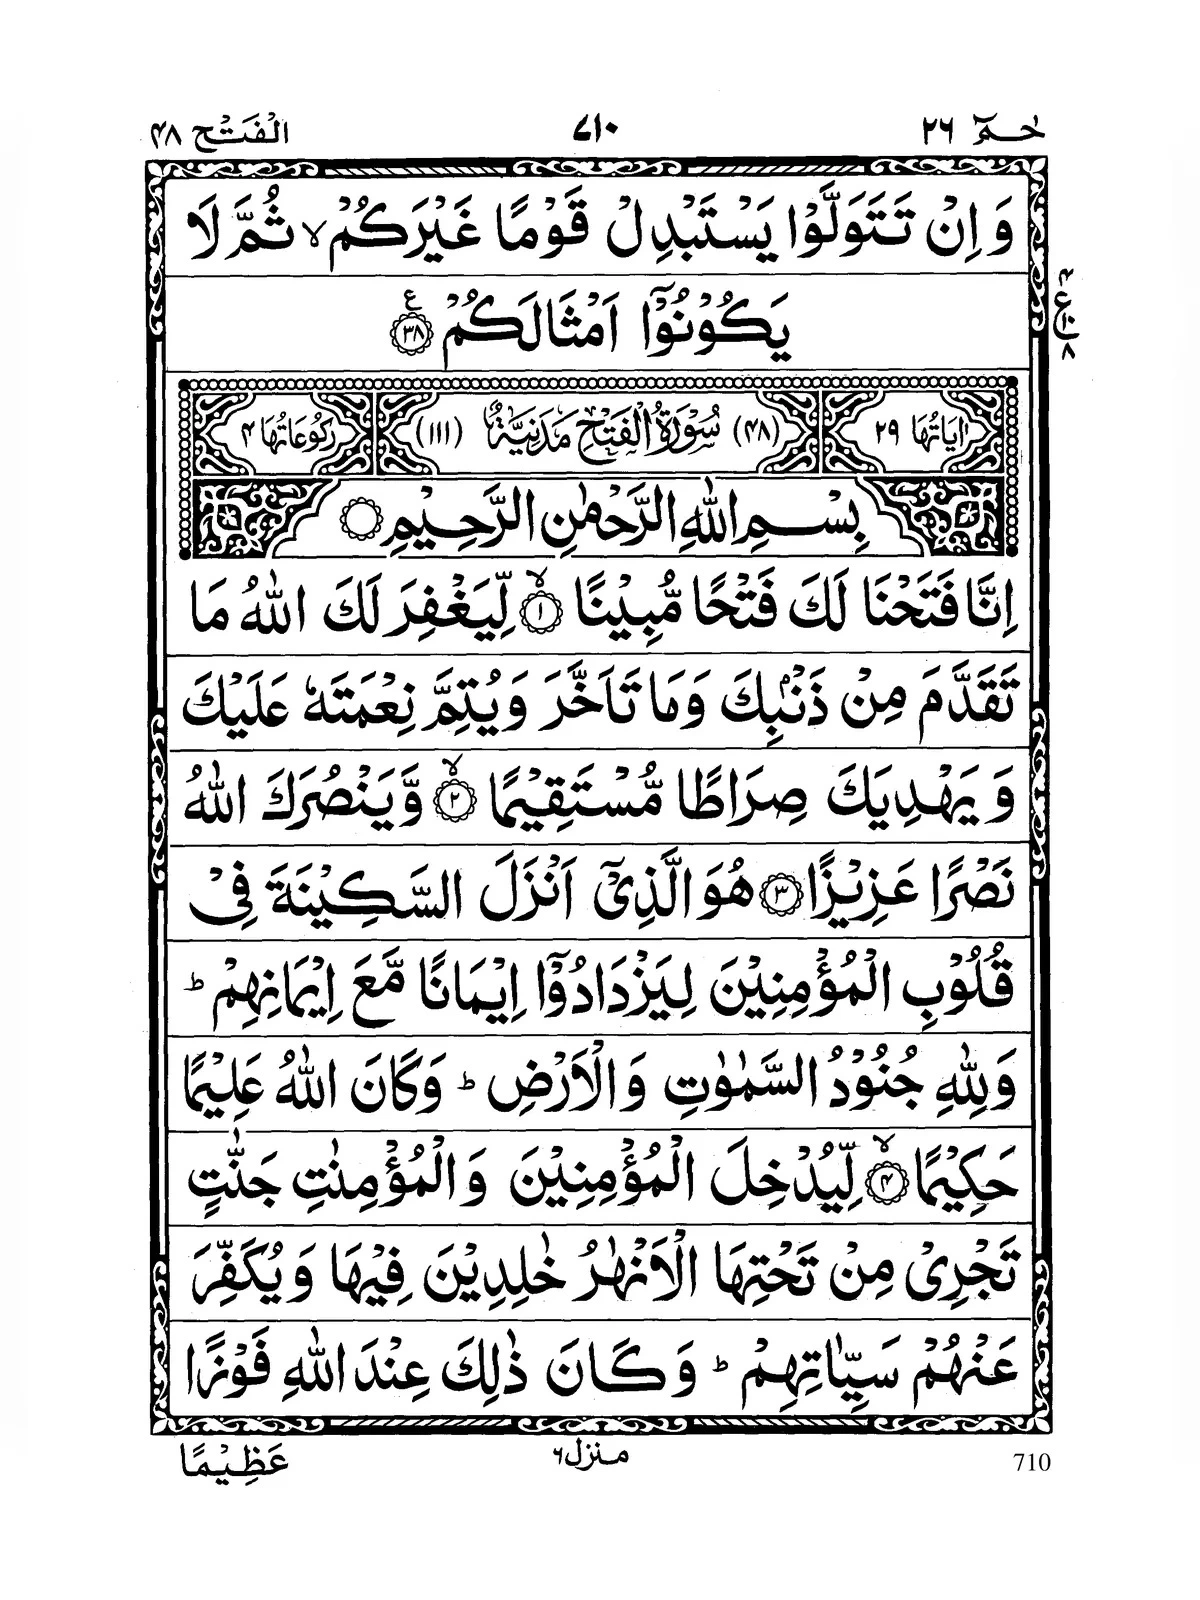 حٰمٓ ٢٦
٧١٠
الْفَتْح ٤٨
وَ اِنْ تَتَوَلَّوْا یَسْتَبْدِلْ قَوْمًا غَیْرَكُمْ ۙ ثُمَّ لَا
یَكُوْنُوْۤا اَمْثَالَكُمْ ۝٣٨ ع
٤ ع ١٠ ٨
اٰیَاتُهَا ٢٩ (٤٨) سُوْرَةُ الْفَتْحِ مَدَنِیَّةٌ (١١١) رُكُوْعَاتُهَا ٤
بِسْمِ اللّٰهِ الرَّحْمٰنِ الرَّحِیْمِ ۝
اِنَّا فَتَحْنَا لَكَ فَتْحًا مُّبِیْنًا ۝١ۙ لِّیَغْفِرَ لَكَ اللّٰهُ مَا
تَقَدَّمَ مِنْ ذَنْۢبِكَ وَمَا تَاَخَّرَ وَیُتِمَّ نِعْمَتَهٗ عَلَیْكَ
وَ یَهْدِیَكَ صِرَاطًا مُّسْتَقِیْمًا ۝٢ۙ وَّیَنْصُرَكَ اللّٰهُ
نَصْرًا عَزِیْزًا ۝٣ هُوَ الَّذِیْۤ اَنْزَلَ السَّكِیْنَةَ فِیْ
قُلُوْبِ الْمُؤْمِنِیْنَ لِیَزْدَادُوْۤا اِیْمَانًا مَّعَ اِیْمَانِهِمْ ؕ
وَلِلّٰهِ جُنُوْدُ السَّمٰوٰتِ وَالْاَرْضِ ؕ وَكَانَ اللّٰهُ عَلِیْمًا
حَكِیْمًا ۝٤ۙ لِّیُدْخِلَ الْمُؤْمِنِیْنَ وَالْمُؤْمِنٰتِ جَنّٰتٍ
تَجْرِیْ مِنْ تَحْتِهَا الْاَنْهٰرُ خٰلِدِیْنَ فِیْهَا وَیُكَفِّرَ
عَنْهُمْ سَیِّاٰتِهِمْ ؕ وَ كَانَ ذٰلِكَ عِنْدَ اللّٰهِ فَوْزًا
عَظِیْمًا
منزل ٦
710